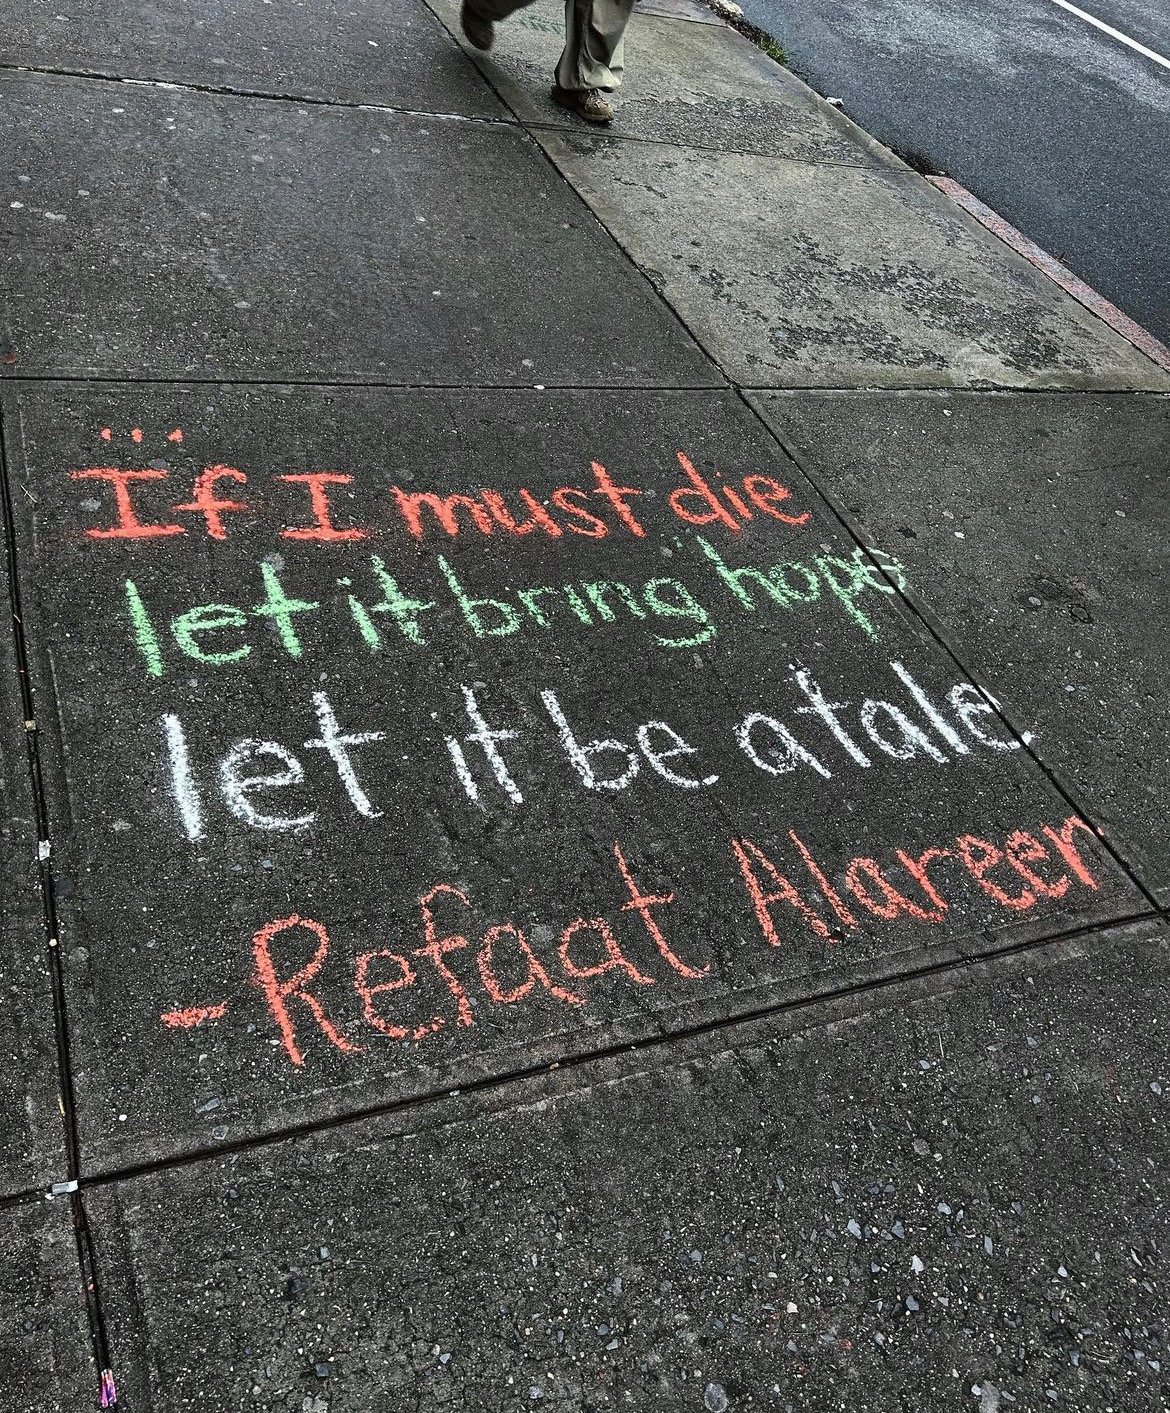 ...
If I must die
let it bring hope
let it be a tale
- Refaat Alareer